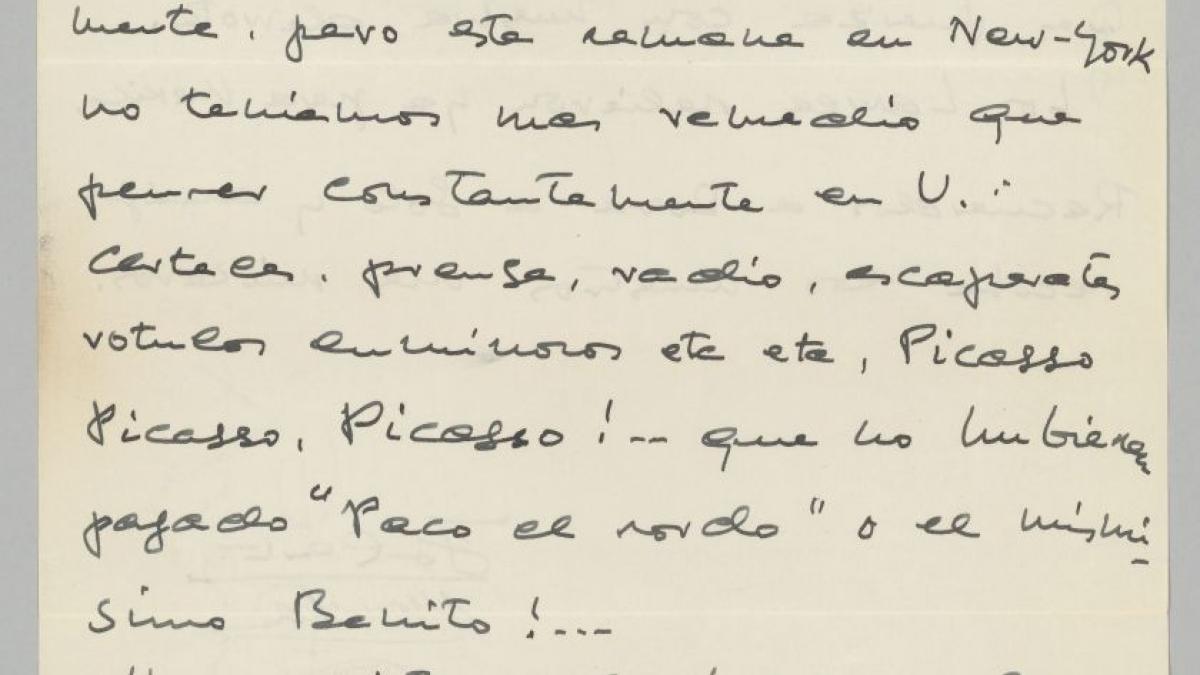 mente. pero esta semana en New-York
no teniamos mas remedio que
penser constantemente en U.:
Carteles. prensa, radio, escaparates
rotulos luminosos etc etc, Picasso
Picasso, Picasso !-- que no hubieran
pagado "Paco el sordo" o el mismi-
simo Benito !---